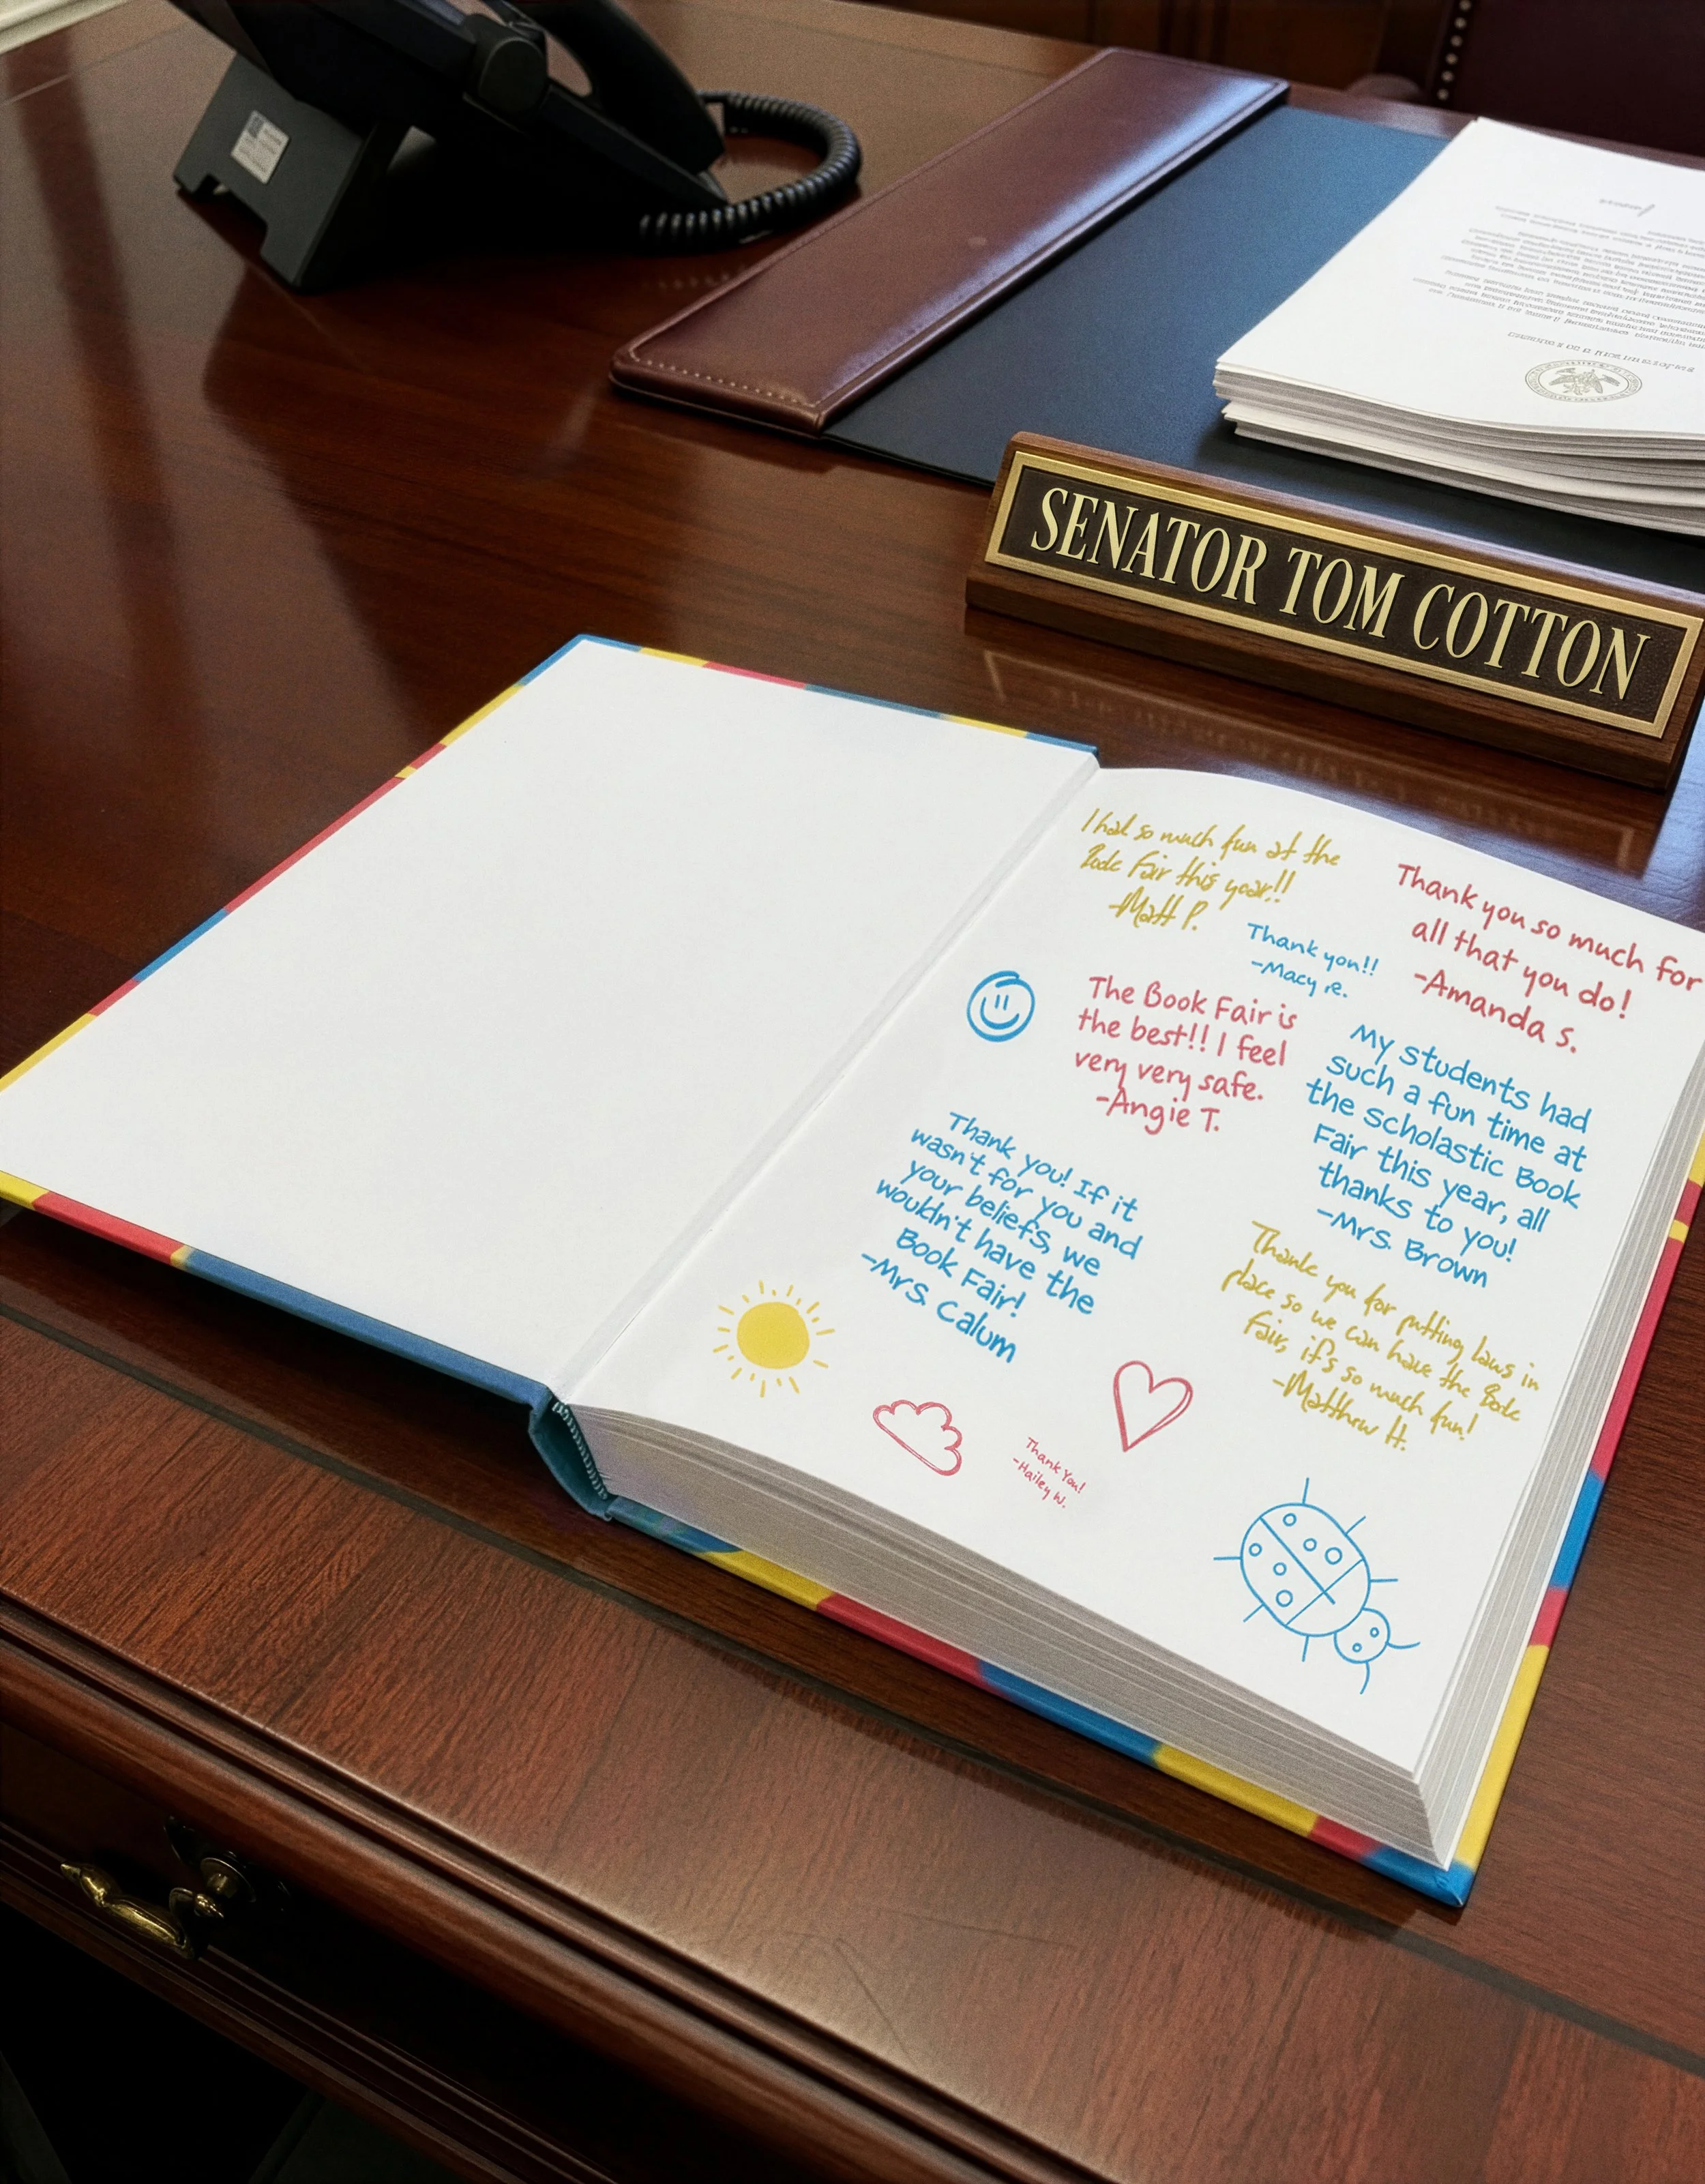 SENATOR TOM COTTON
I had so much fun at the
Book Fair this year!!
-Matt P.
Thank you so much for
all that you do!
-Amanda S.
Thank you!!
-Macy R.
The Book Fair is
the best!! I feel
very very safe.
-Angie T.
My students had
such a fun time at
the scholastic Book
Fair this year, all
thanks to you!
-Mrs. Brown
Thank you! If it
wasn't for you and
your beliefs, we
wouldn't have the
Book Fair!
-Mrs. Calum
Thank you for putting laws in
place so we can have the Book
Fair, it's so much fun!
-Matthew H.
Thank You!
-Hailey W.